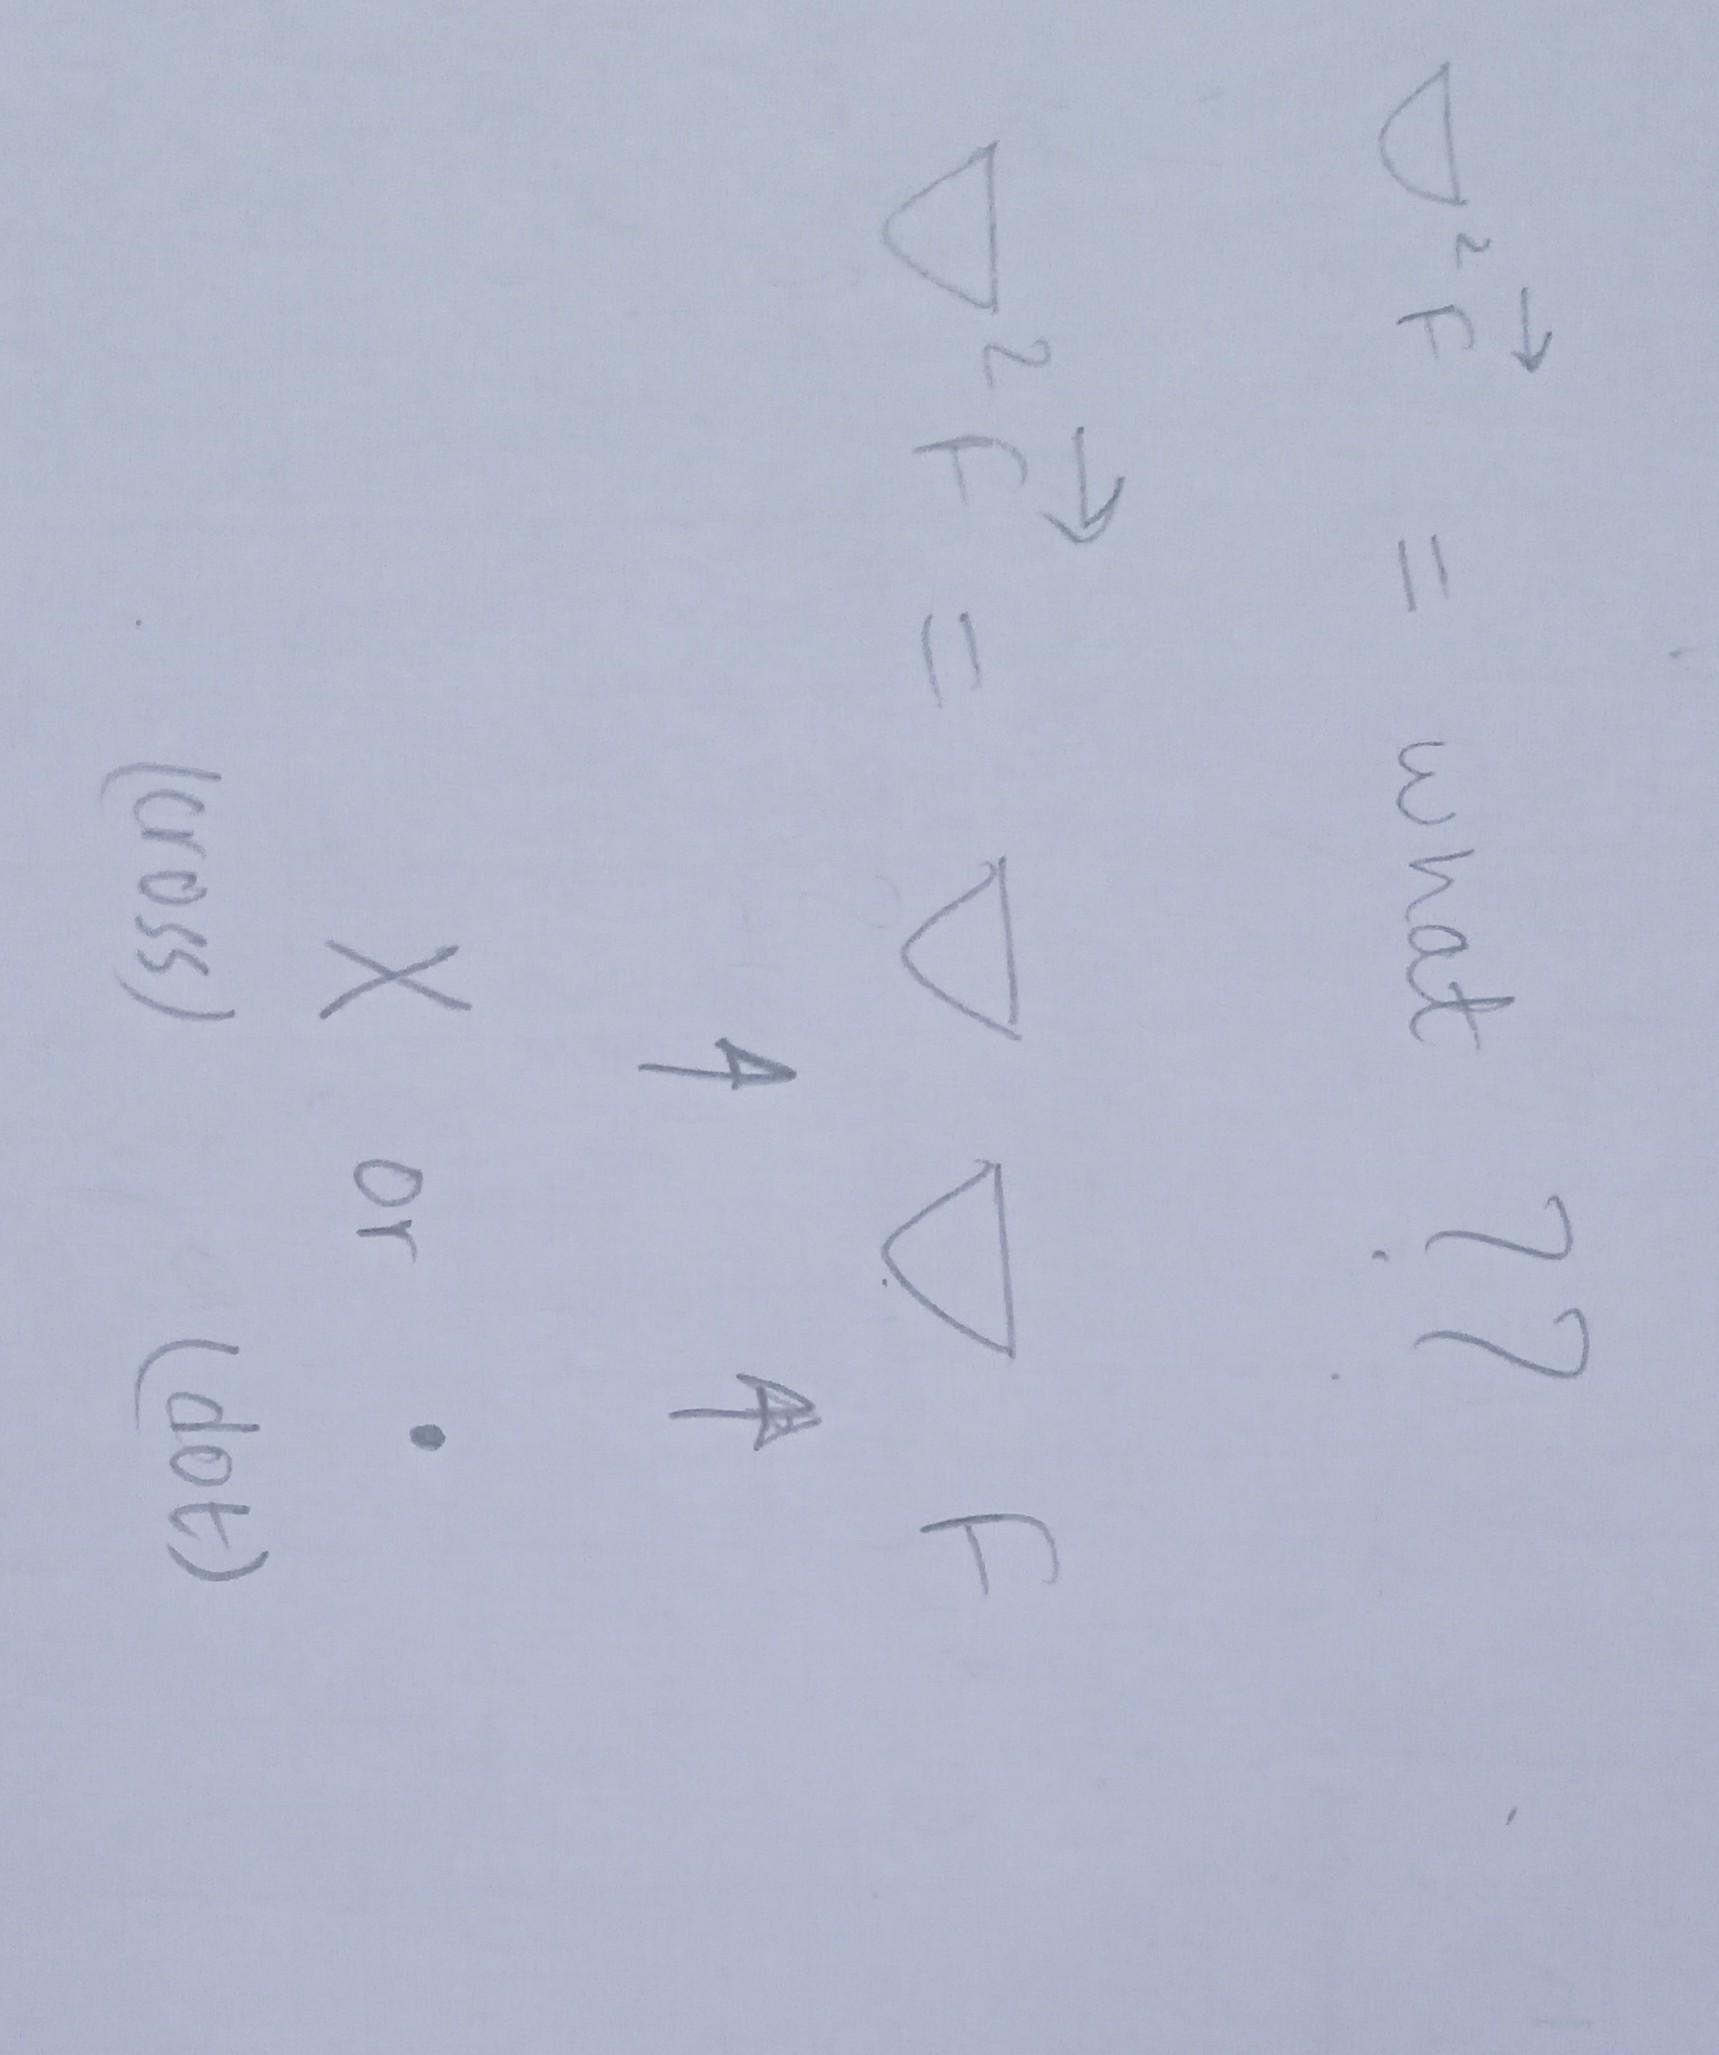 ∇² F⃗ = what ??
∇² F⃗ = ∇ ∇ F
↑ ↑
X or •
(cross) (dot)